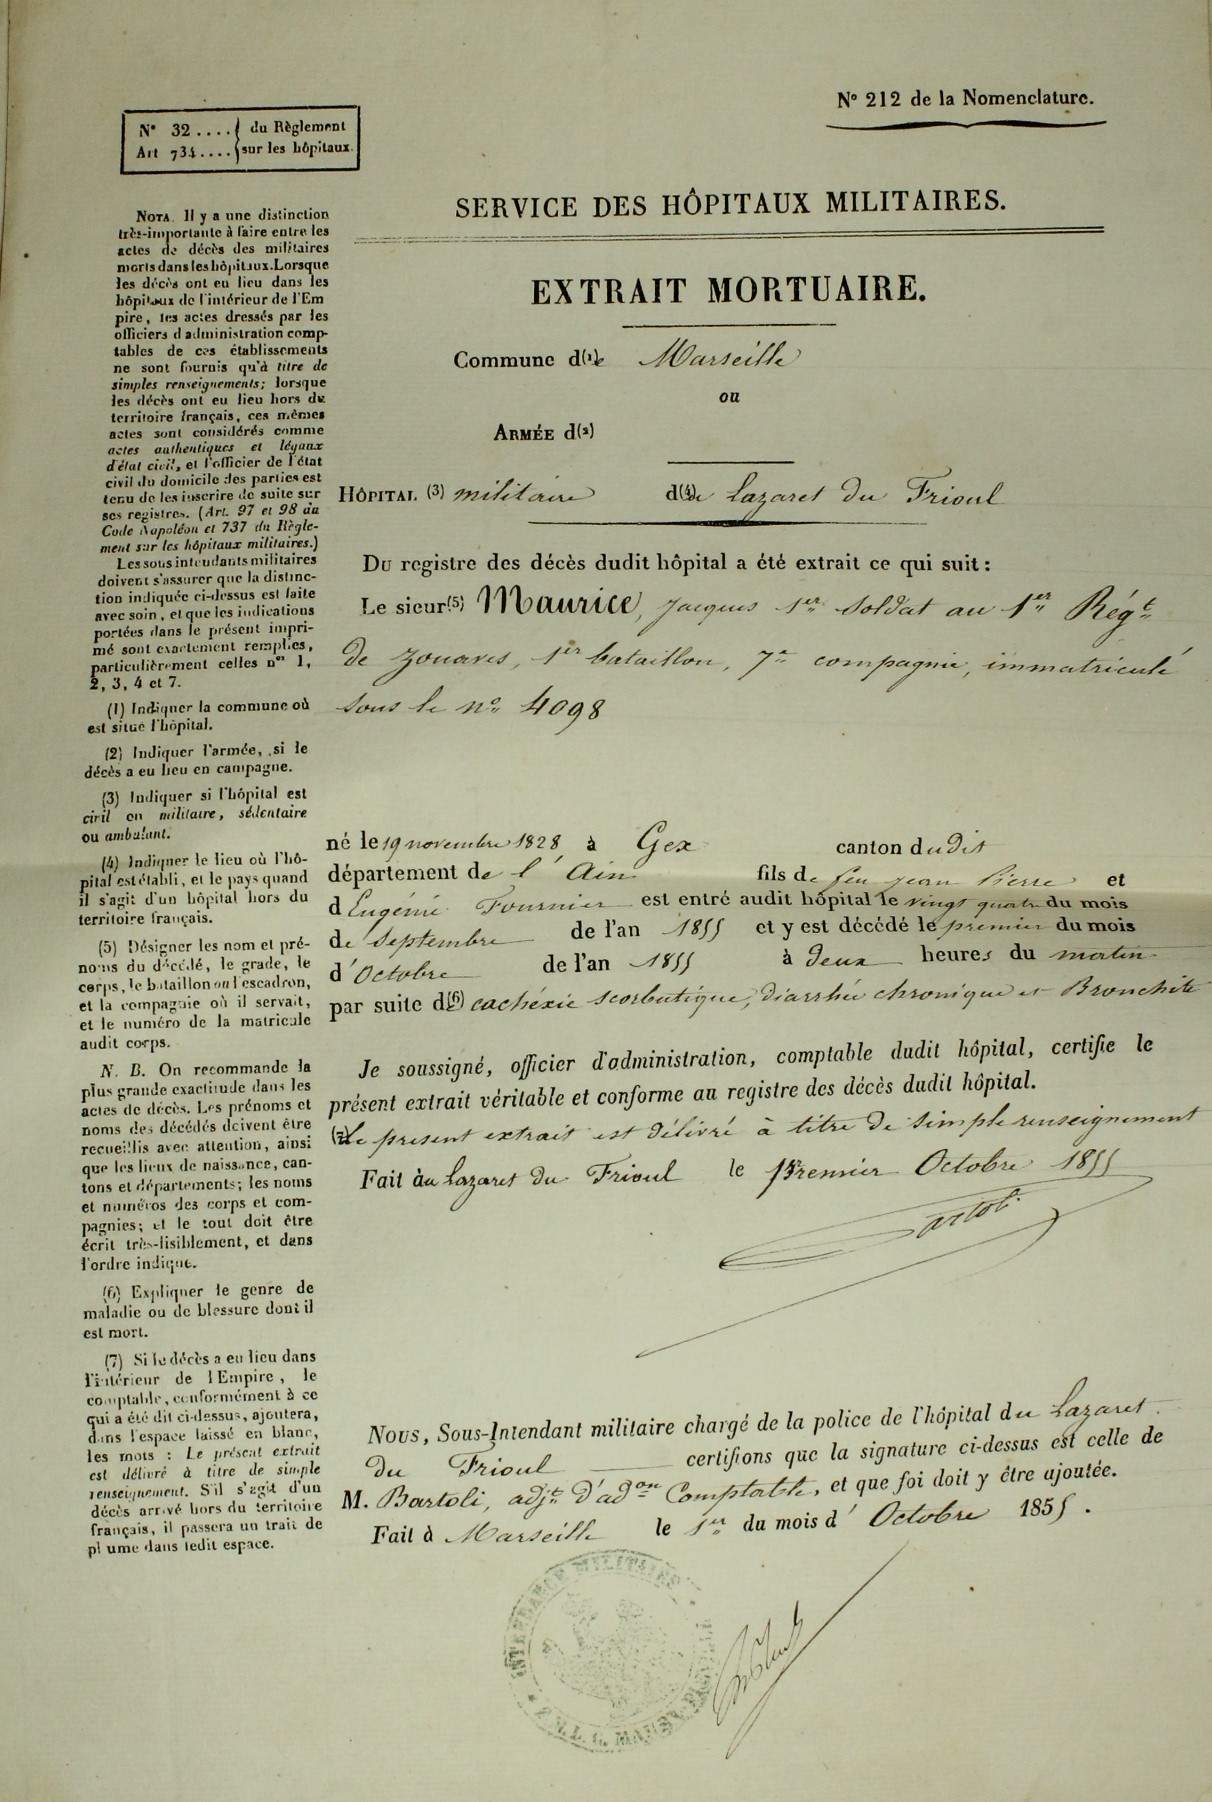 N° 212 de la Nomenclature.
N° 32 .... du Règlement
Art 734.... sur les hôpitaux.
SERVICE DES HÔPITAUX MILITAIRES.
EXTRAIT MORTUAIRE.
Commune d(1)e Marseille
ou
ARMÉE d(2)
HÔPITAL (3) militaire d(4)u Lazaret du Frioul
Du registre des décès dudit hôpital a été extrait ce qui suit :
Le sieur(5) Maurice, Jacques 1er Soldat au 1er Régt
de Zouaves, 1er bataillon, 7e compagnie, immatriculé
sous le no 4098
né le 19 novembre 1828 à Gex canton dudit
département de l'Ain fils de feu Jean Pierre et
d'Eugénie Fournier est entré audit hôpital le vingt quatre du mois
de Septembre de l'an 1855 et y est décédé le premier du mois
d'Octobre de l'an 1855 à deux heures du matin
par suite d(6)e cachéxie scorbutique, diarrhée chronique et Bronchite
Je soussigné, officier d'administration, comptable dudit hôpital, certifie le
présent extrait véritable et conforme au registre des décès dudit hôpital.
(7) Le present extrait est délivré à titre de simple renseignement
Fait au Lazaret du Frioul le Premier Octobre 1855
Bartoli
Nous, Sous-Intendant militaire chargé de la police de l'hôpital du Lazaret
du Frioul certifions que la signature ci-dessus est celle de
M. Bartoli, adjt d'adon Comptable, et que foi doit y être ajoutée.
Fait à Marseille le 1er du mois d'Octobre 1855.
INTENDANCE MILITAIRE
NOTA. Il y a une distinction
très-importante à faire entre les
actes de décès des militaires
morts dans les hôpitaux. Lorsque
les décès ont eu lieu dans les
hôpitaux de l'intérieur de l'Em
pire, les actes dressés par les
officiers d administration comp-
tables de ces établissements
ne sont fournis qu'à titre de
simples renseignements; lorsque
les décès ont eu lieu hors du
territoire français, ces mêmes
actes sont considérés comme
actes authentiques et légaux
d'état civil, et l'officier de l'état
civil du domicile des parties est
tenu de les inscrire de suite sur
ses registres. (Art. 97 et 98 du
Code Napoléon et 737 du Règle-
ment sur les hôpitaux militaires.)
Les sous intendants militaires
doivent s'assurer que la distinc-
tion indiquée ci-dessus est faite
avec soin, et que les indications
portées dans le présent impri-
mé sont exactement remplies,
particulièrement celles nos 1,
2, 3, 4 et 7.
(1) Indiquer la commune où
est situé l'hôpital.
(2) Indiquer l'armée, si le
décès a eu lieu en campagne.
(3) Indiquer si l'hôpital est
civil ou militaire, sédentaire
ou ambulant.
(4) Indiquer le lieu où l'hô-
pital est établi, et le pays quand
il s'agit d'un hôpital hors du
territoire français.
(5) Désigner les nom et pré-
noms du décédé, le grade, le
corps, le bataillon ou l'escadron,
et la compagnie où il servait,
et le numéro de la matricule
audit corps.
N. B. On recommande la
plus grande exactitude dans les
actes de décès. Les prénoms et
noms des décédés doivent être
recueillis avec attention, ainsi
que les lieux de naissance, can-
tons et départements; les noms
et numéros des corps et com-
pagnies; et le tout doit être
écrit très-lisiblement, et dans
l'ordre indiqué.
(6) Expliquer le genre de
maladie ou de blessure dont il
est mort.
(7) Si le décès a eu lieu dans
l'intérieur de l Empire, le
comptable, conformément à ce
qui a été dit ci-dessus, ajoutera,
dans l'espace laissé en blanc,
les mots : Le présent extrait
est délivré à titre de simple
renseignement. S'il s'agit d'un
décès arrivé hors du territoire
français, il passera un trait de
plume dans ledit espace.